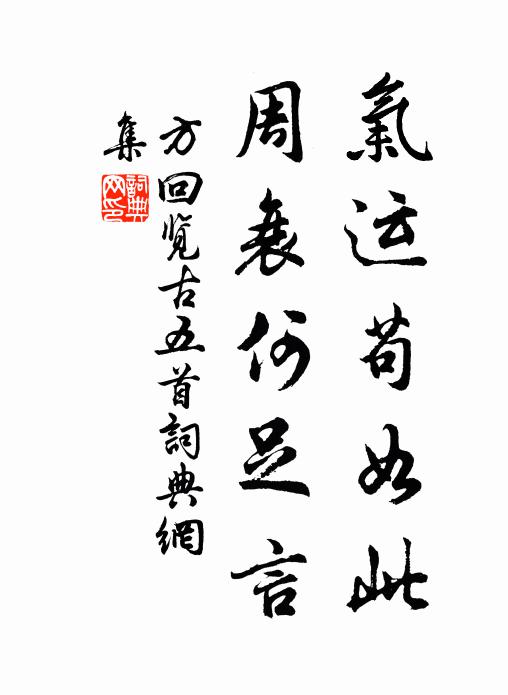 氣运苟如此
周衰何足言
方回览古五首詞典網
集
詞典网印